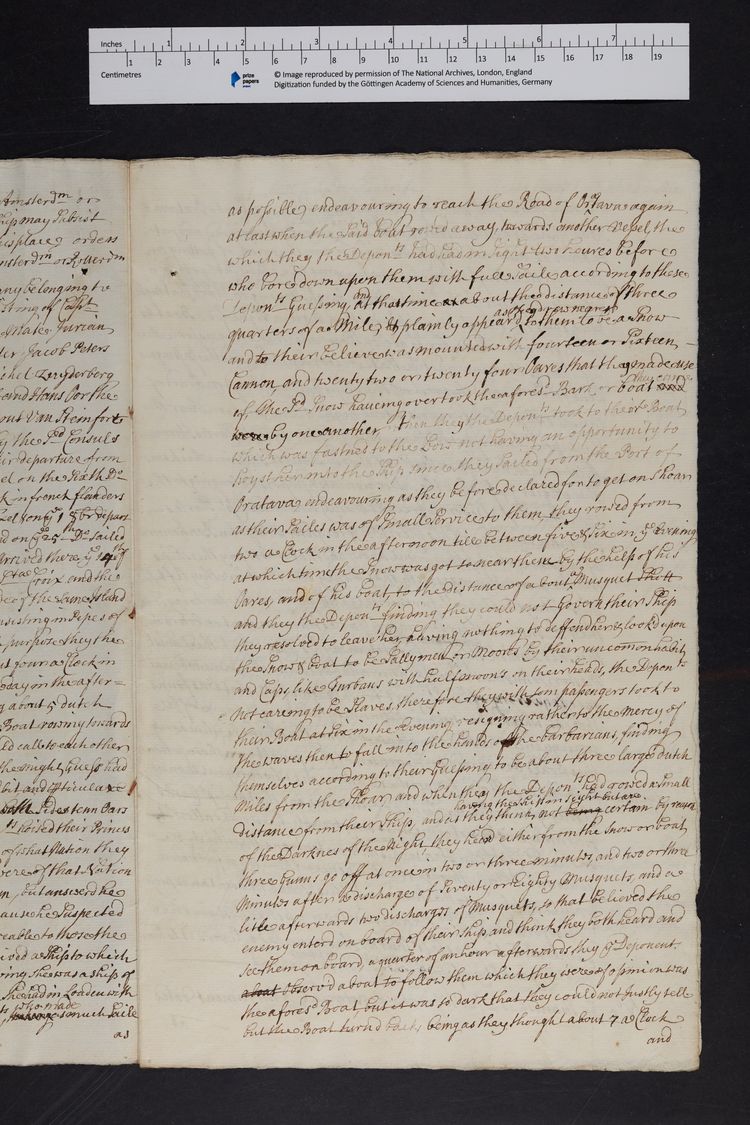 Inches 1 2 3 4 5 6 7
1 2 3 4 5 6 7 8 9 10 11 12 13 14 15 16 17 18 19
Centimetres
prize papers
© Image reproduced by permission of The National Archives, London, England
Digitization funded by the Göttingen Academy of Sciences and Humanities, Germany
Amsterdm or
ship may Subsist
his place, orders
Amsterdm or Rotterdm
any belonging to
String of Captn
Make Jurian
Jacob Peters
Zuyderberg
and Hans Oorthe
out Van Steinfort
by the sd Consuls
ir departure from
on the Sixth Do
in french flanders
arrived there ye 14th of
Croix and the
of the Same Island
consisting in Pipes of
purpose they the
four a Clock in
day in the after=
about 5 dutch
Boat rowing towards
calls to each other
the might Guess had
with Sixteen Oars
hoised their Princes
of what Nation they
were of that Nation
but answerd he
cause he Suspected
a Ship to which
ring She was a Ship of
She had in Loaden with
who made
as much Saile
as
as possible, endeavouring to reach the Road of Oratava again
at last when the said boat rowed away, towards another Vessel, the
which they the Deponts had had in Sight two houres before
who bore down upon them with full Saile according to these
Deponts Guessing, and at that time at about the distance of three
as they drew nearer
quarters of a Mile, & plainly appeard to them to be a Snow
and to their believe was mounted with fourteen or Sixteen
Cannon, and twenty two or twenty four Oares that they made use
of. The sd Snow haveing overtook the aforesd Bark or boat
were by one another then they the Deponts took to their Boat
which was fastned to the Ship not having an opportunity to
hoyst her into the Ship since they Sailed from the Port of
Oratava endeavouring as they before declared for to get on Shoar
as their Sailes was of Small Service to them, they rowed from
two a Clock in the afternoon till between five & Six in ye Evening
at which time the Snow was got so near them by the help of his
Oares, and of his boat, to the distance of about a Musquet Shott
and they the Deponts finding they could not Govern their Ship
they resolved to leave her, having nothing to deffend her & look'd upon
the Snow & boat to be Sally men or Moors by their uncommon habits
and Caps like Turbans with half moons on their heads, the Deponts
not careing to be Slaves, therefore they with som passengers took to
their Boat at Six in the Evening resigning rather to the Mercy of
the waves then to fall into the hands of the barbareans, finding
themselves according to their Guessing to be about three large Dutch
Miles from the Shoar, and when they the Deponts had rowed a Small
having the ship in sight but are
distance from their Ship, and as they think, not being certain by reason
of the Darknes of the Night they heard either from the Snow or boat
three Gums go off at once in two or three minutes, and two or three
minutes after a discharge of Seventy or Eighty Musquets, and a
litle afterwards two discharges of Musquets, so that believed the
enemy enterd on board of their Ship and think they both heard and
see them on board, a quarter of an hour afterwards they ye Deponent.
about observ'd a boat to follow them which they were of opinion was
the aforesd Boat, but it was so dark that they could not justly tell
but the Boat turnd back, being as they thought about 7 a Clock
and